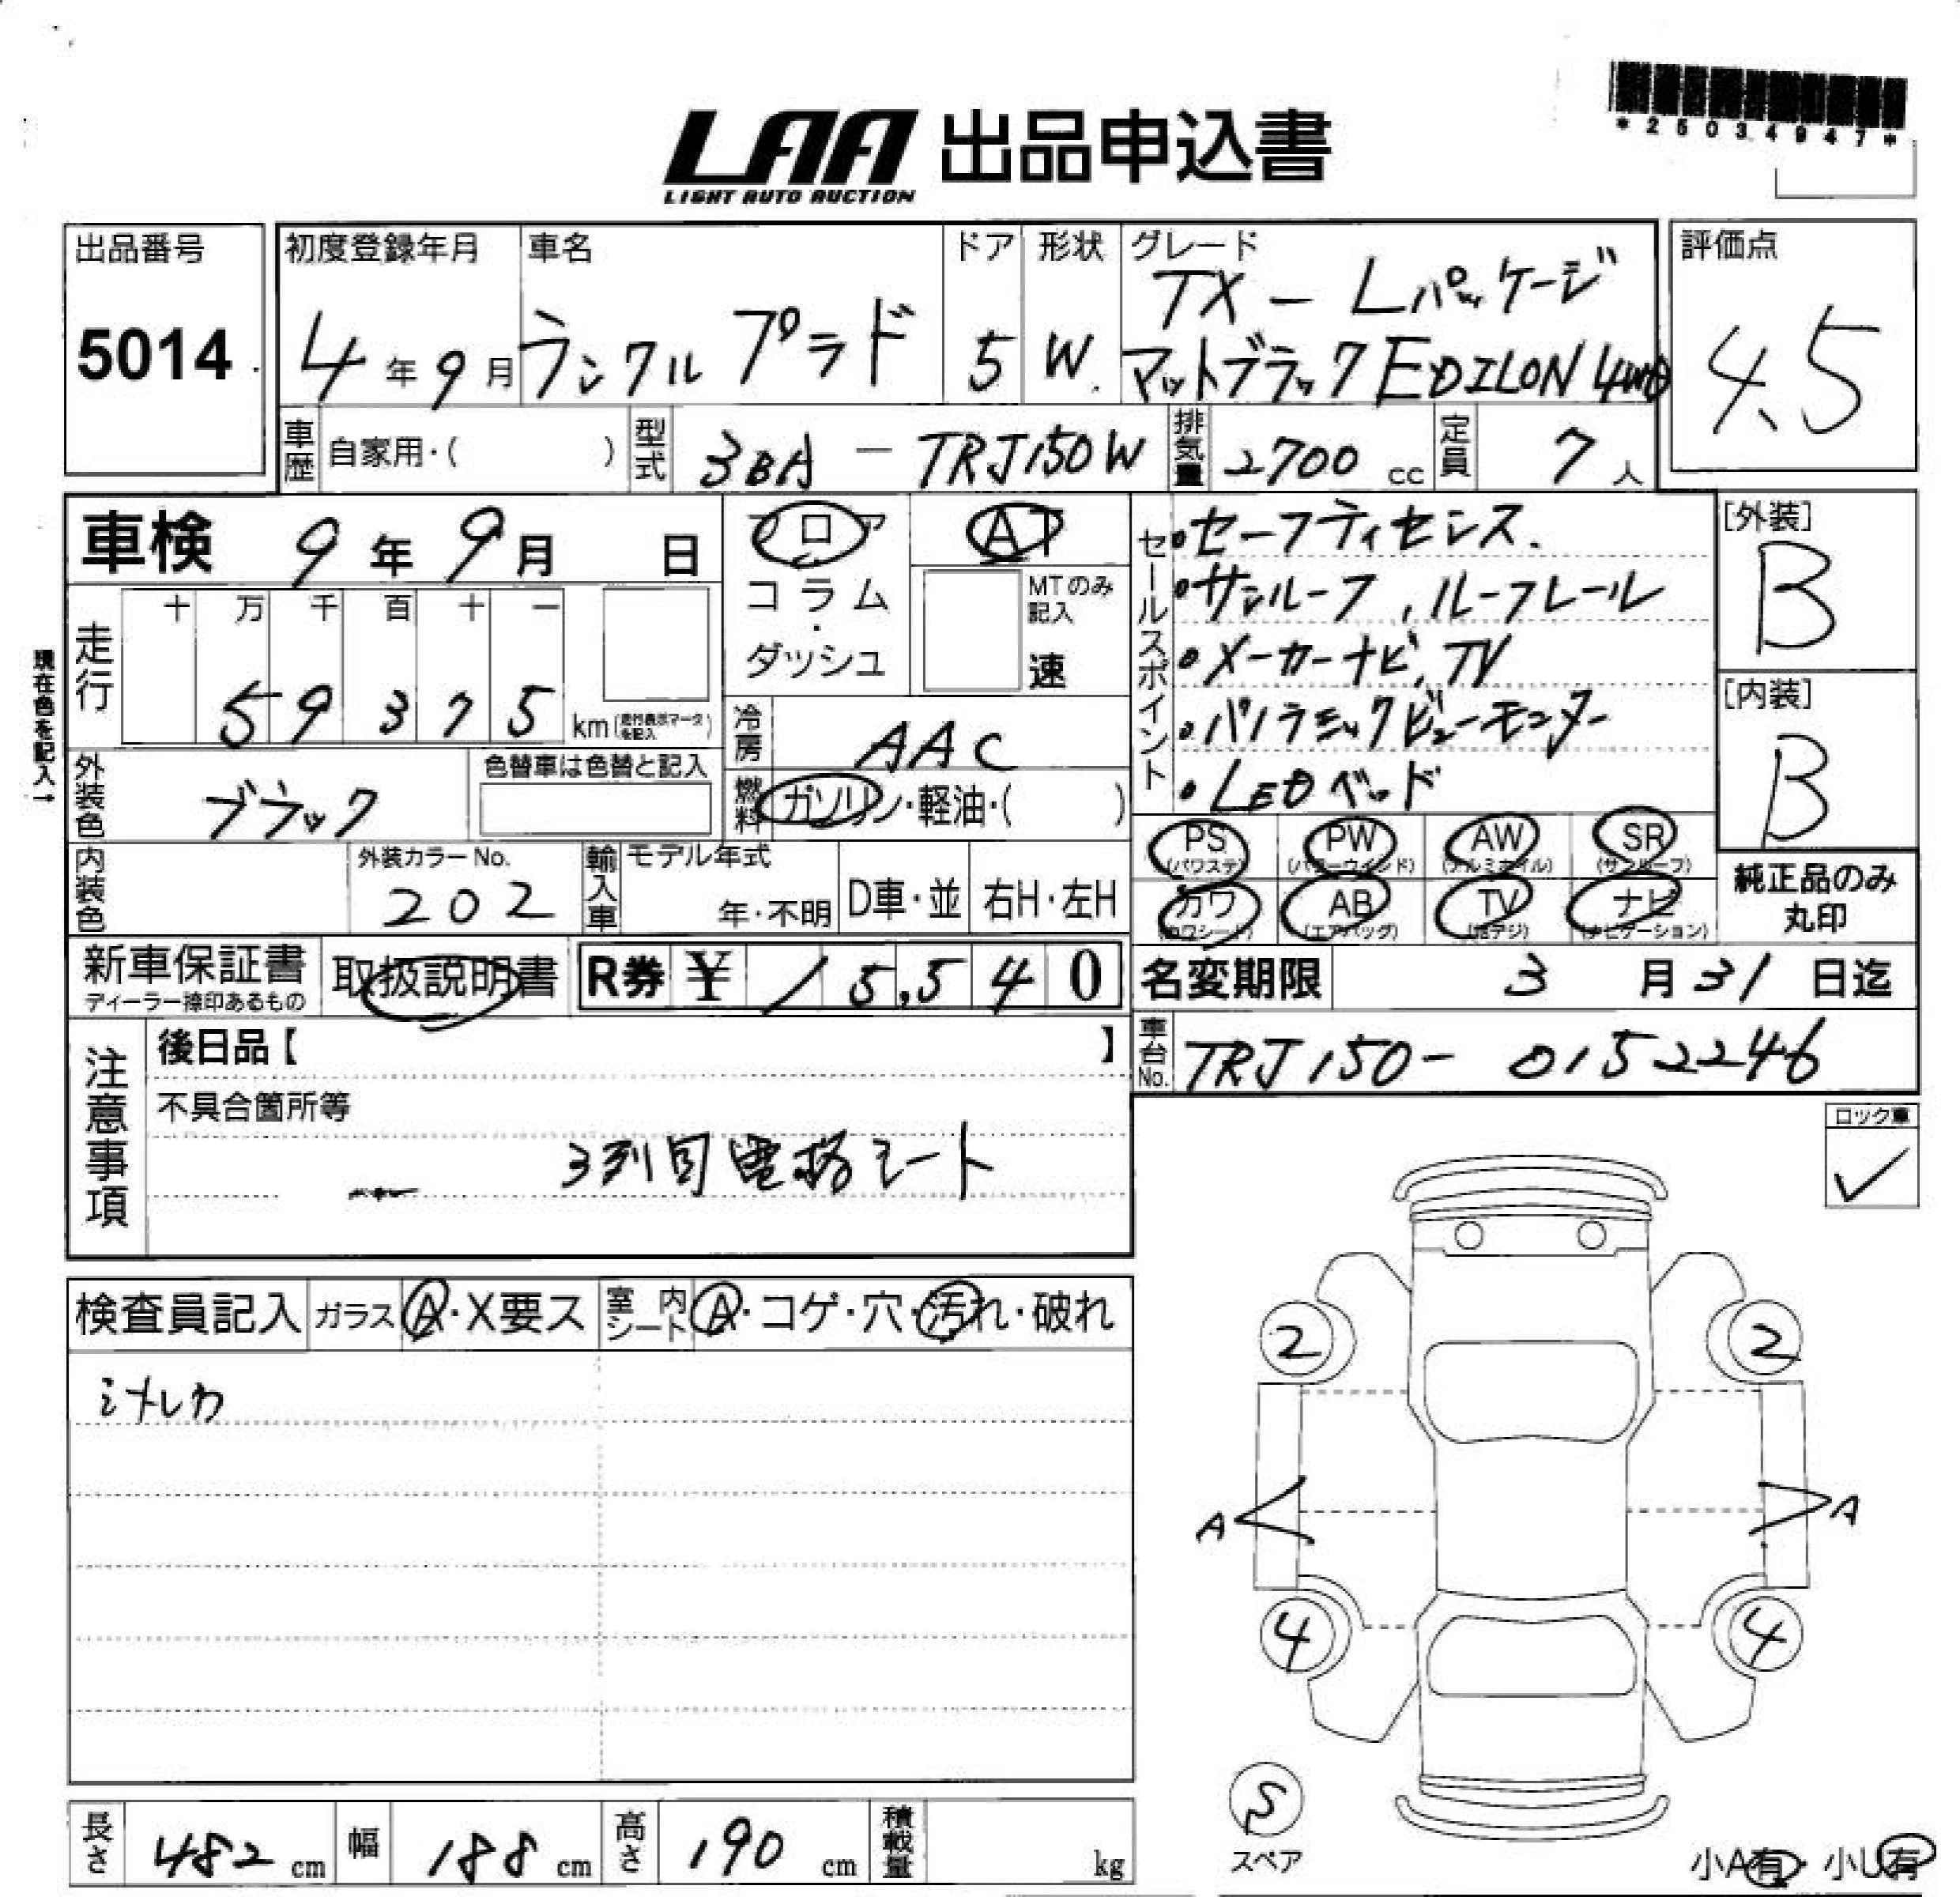 *25034947*
LAA 出品申込書
LIGHT AUTO AUCTION
出品番号
5014
初度登録年月
4年9月
車名
ランクル プラド
ドア
5
形状
W
グレード
TX－Lパッケージ
マットブラックEDILON 4WD
評価点
4.5
車歴 自家用・( )
型式 3BA－TRJ150W
排気量 2700 cc
定員 7人
車検 9年9月 日
フロア
コラム
・
ダッシュ
AT
MTのみ
記入
速
セールスポイント
・セーフティセンス.
・サンルーフ, ルーフレール
・メーカーナビ, TV
・パノラミックビューモニター
・LEDヘッド
[外装]
B
[内装]
B
現在色を記入→
走行
十 万 千 百 十 一
5 9 3 7 5 km(走行表示マークを記入)
冷房 AAC
外装色 ブラック
色替車は色替と記入
燃料 ガソリン・軽油・( )
PS (パワステ)
PW (パワーウインド)
AW (アルミホイル)
SR (サンルーフ)
カワ (カワシート)
AB (エアバッグ)
TV (地デジ)
ナビ (ナビゲーション)
純正品のみ
丸印
内装色
外装カラーNo.
202
輸入車
モデル年式
年・不明
D車・並
右H・左H
新車保証書
ディーラー捺印あるもの
取扱説明書
R券 ¥ 15,540
名変期限 3月31日迄
車台No. TRJ150－0152246
注意事項
後日品【 】
不具合箇所等
3列目電格シート
ロック車
✓
検査員記入
ガラス A・X要ス
室内シート A・コゲ・穴・汚れ・破れ
2
2
A
A
4
4
S
スペア
小A有・小U有
長さ 482 cm
幅 188 cm
高さ 190 cm
積載量 kg